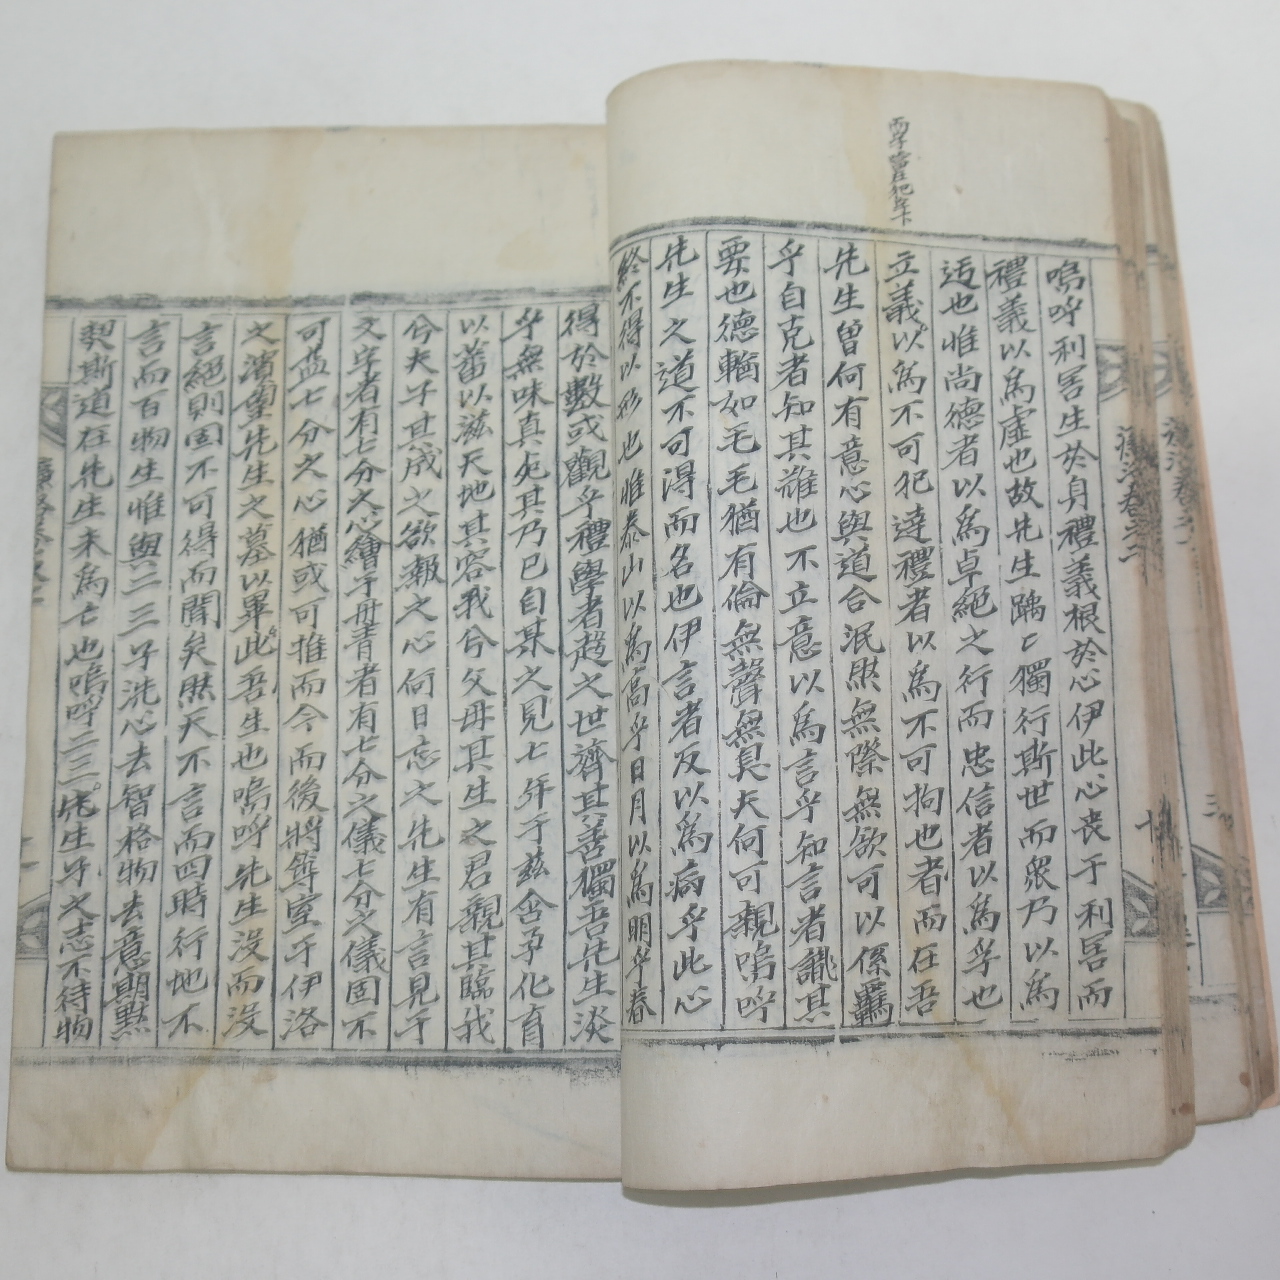 而字當在犯字下
嗚呼利害生於身禮義根於心伊此心喪于利害而
禮義以爲虛也故先生踽〻獨行斯世而衆乃以爲
迃也惟尚德者以爲卓絕之行而忠信者以爲孚也
立義以爲不可犯達禮者以爲不可拘也者而在吾
先生曾何有意心與道合泯然無際無欲可以係羈
乎自克者知其難也不立意以爲言乎知言者識其
要也德輶如毛毛猶有倫無聲無臭夫何可親嗚呼
先生之道不可得而名也伊言者反以爲病乎此心
終不得以形也惟泰山以爲高乎日月以爲明乎春
得於數或觀乎禮學者趍之世濟其善獨吾先生淡
乎無味真死其乃已自某之見七年于茲含孕化育
以蕃以滋天地其容我兮父母其生之君親其臨我
兮夫子其成之欲報之心何日忘之先生有言見于
文字者有七分之心繪于丹青者有七分之儀七分之儀固不
可益七分之心猶或可推而今而後將築室于伊洛
之濱望先生之墓以畢此吾生也嗚呼先生沒而沒
言絕則固不可得而聞矣然天不言而四時行地不
言而百物生惟與二三子洗心去智格物去意期默
契斯道在先生未爲亡也嗚呼二三先生子之志不待物